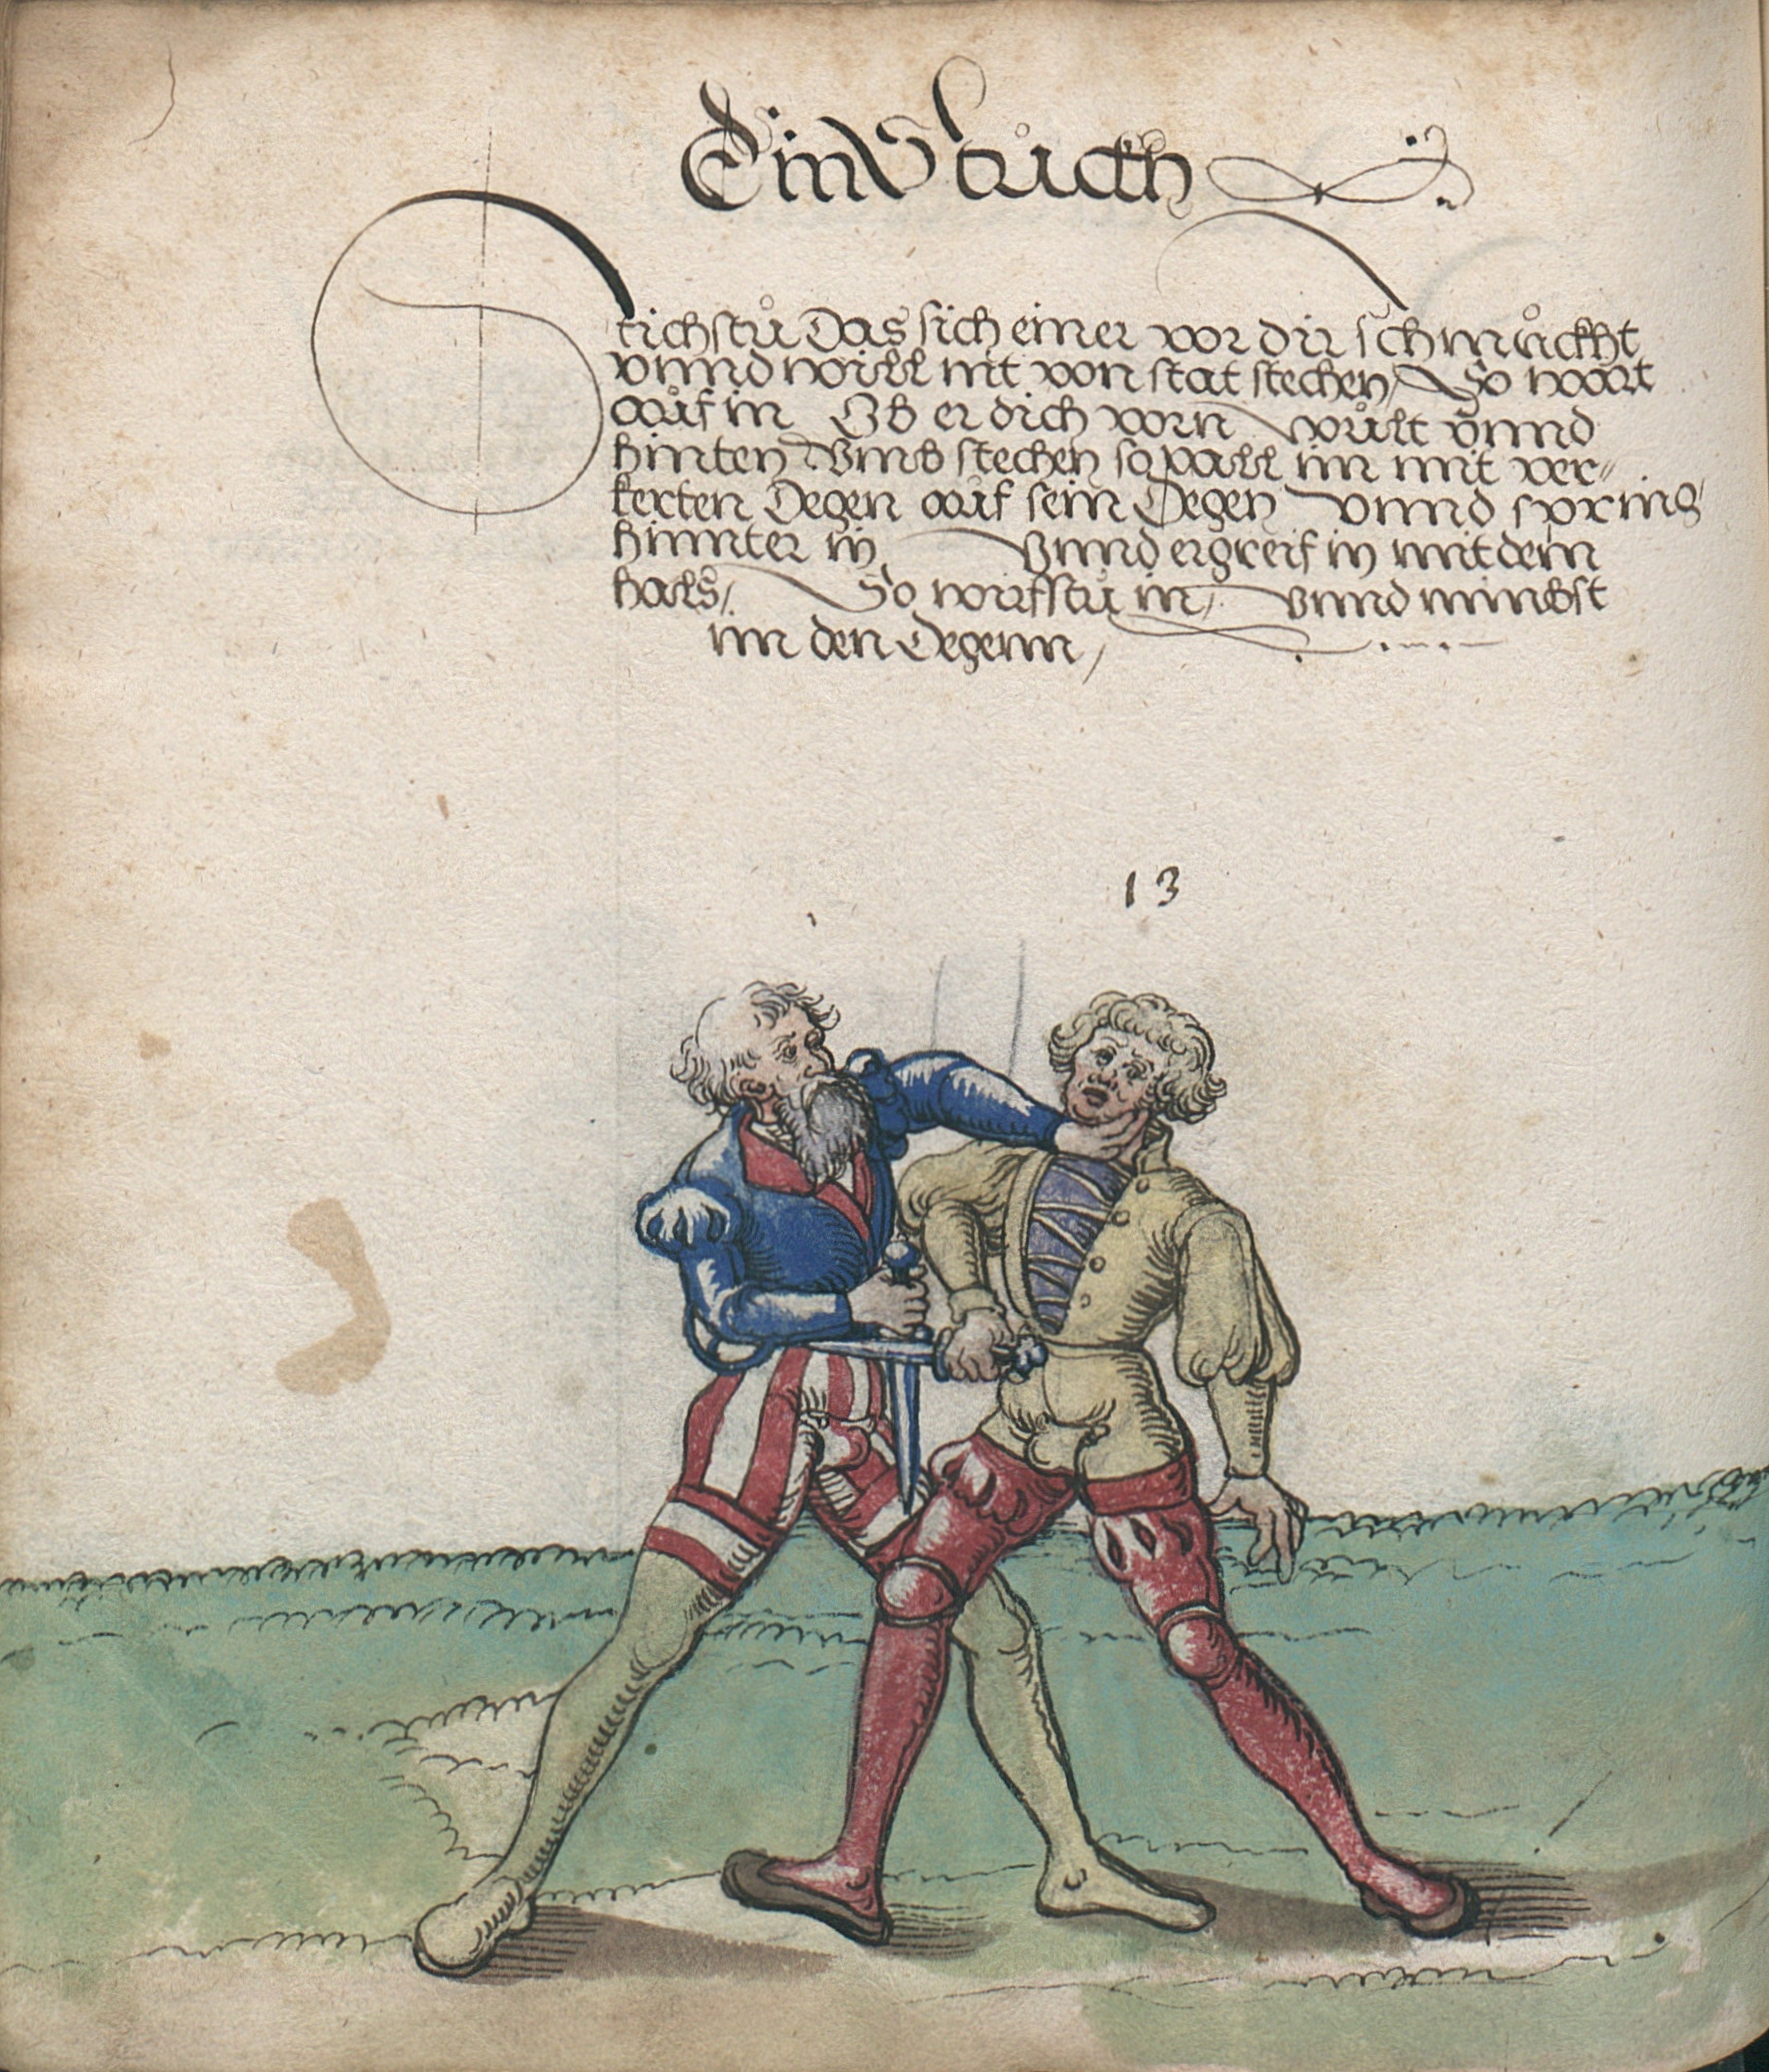 Ein Stuckh
Sichstu Das sich einer vor dir schmuckht
vnnd will nit von stat stechen / So wart
auf in Ob er dich vorn wult vnnd
hinten Vmb stechen so vall im mit ver=
kerten Degen auf sein Degen vnnd spring
hinnter in Vnnd ergreif in mit dem
hals /. So wirfstu in /. vnnd nimbst
im den Degenn /
13